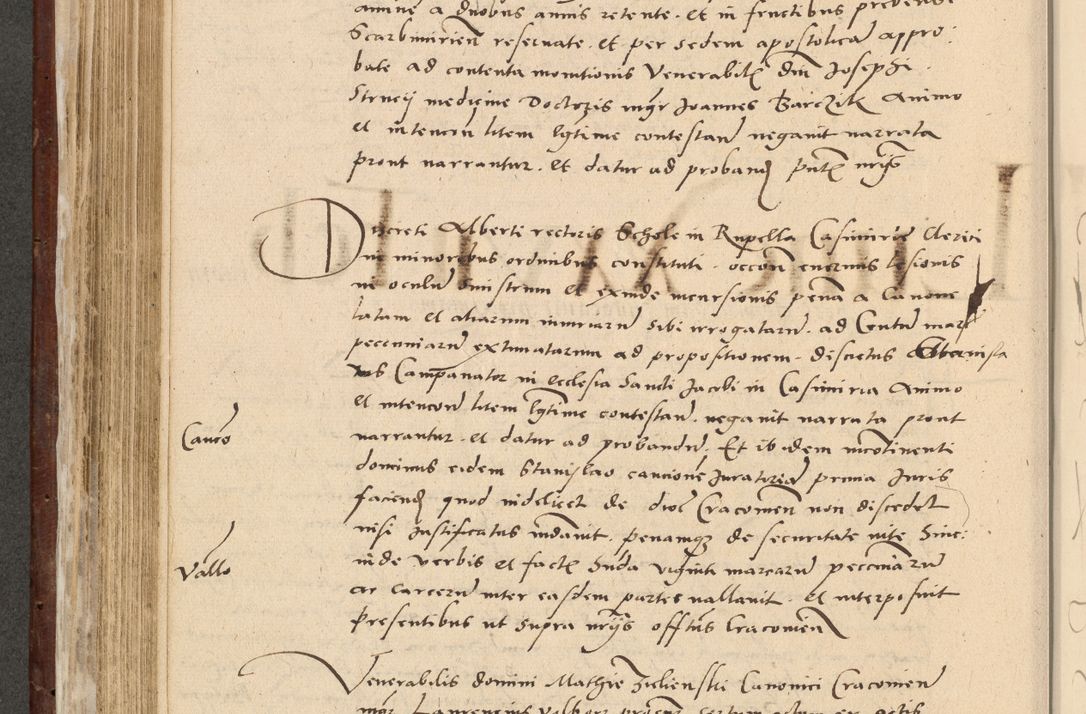 anime a duobus annis retente. et in fructibus prebende
Scarbimirien reservate. et per sedem apostolicam appro
bate ad contenta monitionis Venerabilis dni Josephi
Strucij medicine Doctoris mgr Joannes Barczik Animo
et intencion litem lgtime contestand negavit narrata
prout narrantur. et datur ad proband pntibus
Discreti Alberti rectoris Schole in Rupella Casimirie Clerici
in minoribus ordinibus constituti. occon enormis lesionis
in oculum sinistrum et exinde incursionis penam a Canone
latam et aliarum iniuriarum sibi irrogatarum. ad Centum mar
pecuniarum extimatarum ad propositionem. discretus
Campanator in ecclesia Sancti Jacobi in Casimiria Animo
et intencion litem lgtime contestand. negavit narrata prout
narrantur. et datur ad probandum. Et ibidem incontinenti
dominus eidem Stanislao caucionem Juratoriam prima Juris
faciend quod videlicet de dioc Cracovien non discedet
nisi Justificatus indaxit. penamque de securitate vite Sine:
inde verbis et factis Suba viginti marcarum peccuniarum
ac Carcerum inter easdem partes vallavit. et interposuit
Presentibus ut supra offtus Cracovien
Caucio
Vallo
Venerabilis domini Mathie Zielienski Canonici Cracovien
mgr Laurencius procur certum actum ex actis